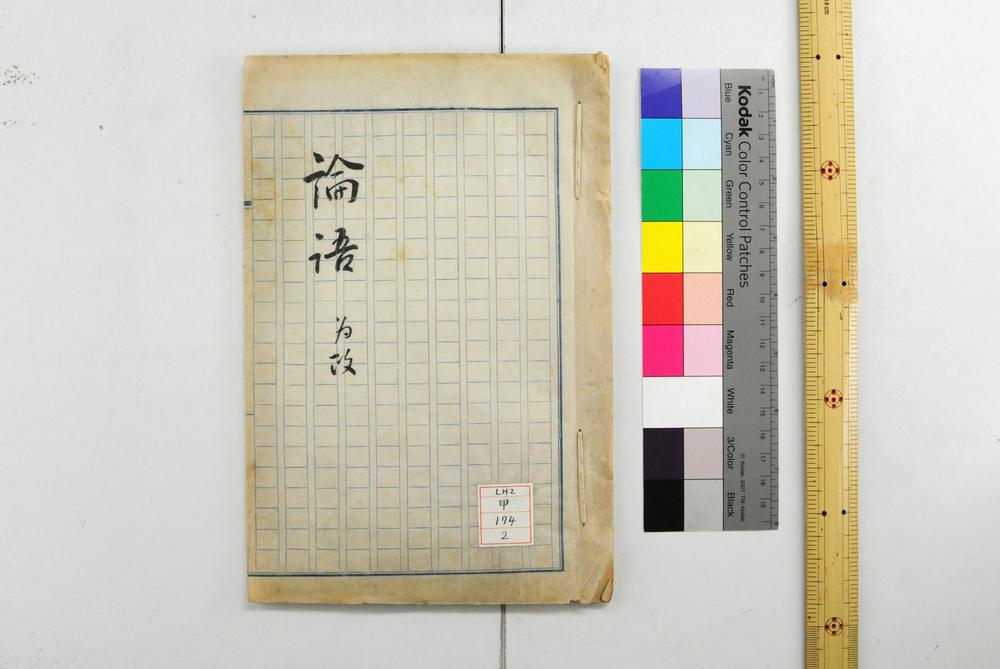 論語
为政
LH2
甲
174
2
Kodak Color Control Patches
Blue
Cyan
Green
Yellow
Red
Magenta
White
3/Color
Black
© Kodak, 2007 TM: Kodak
1 2 3 4 5 6 7 8 9 10 11 12 13 14 15 16 17 18 19